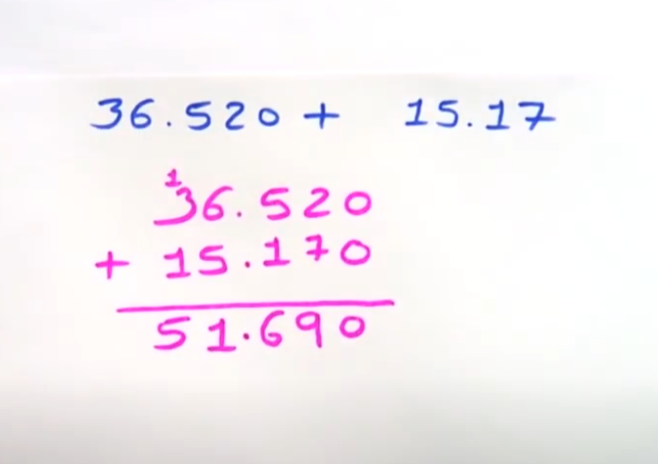 36.520 + 15.17
1
36.520
+ 15.170
51.690